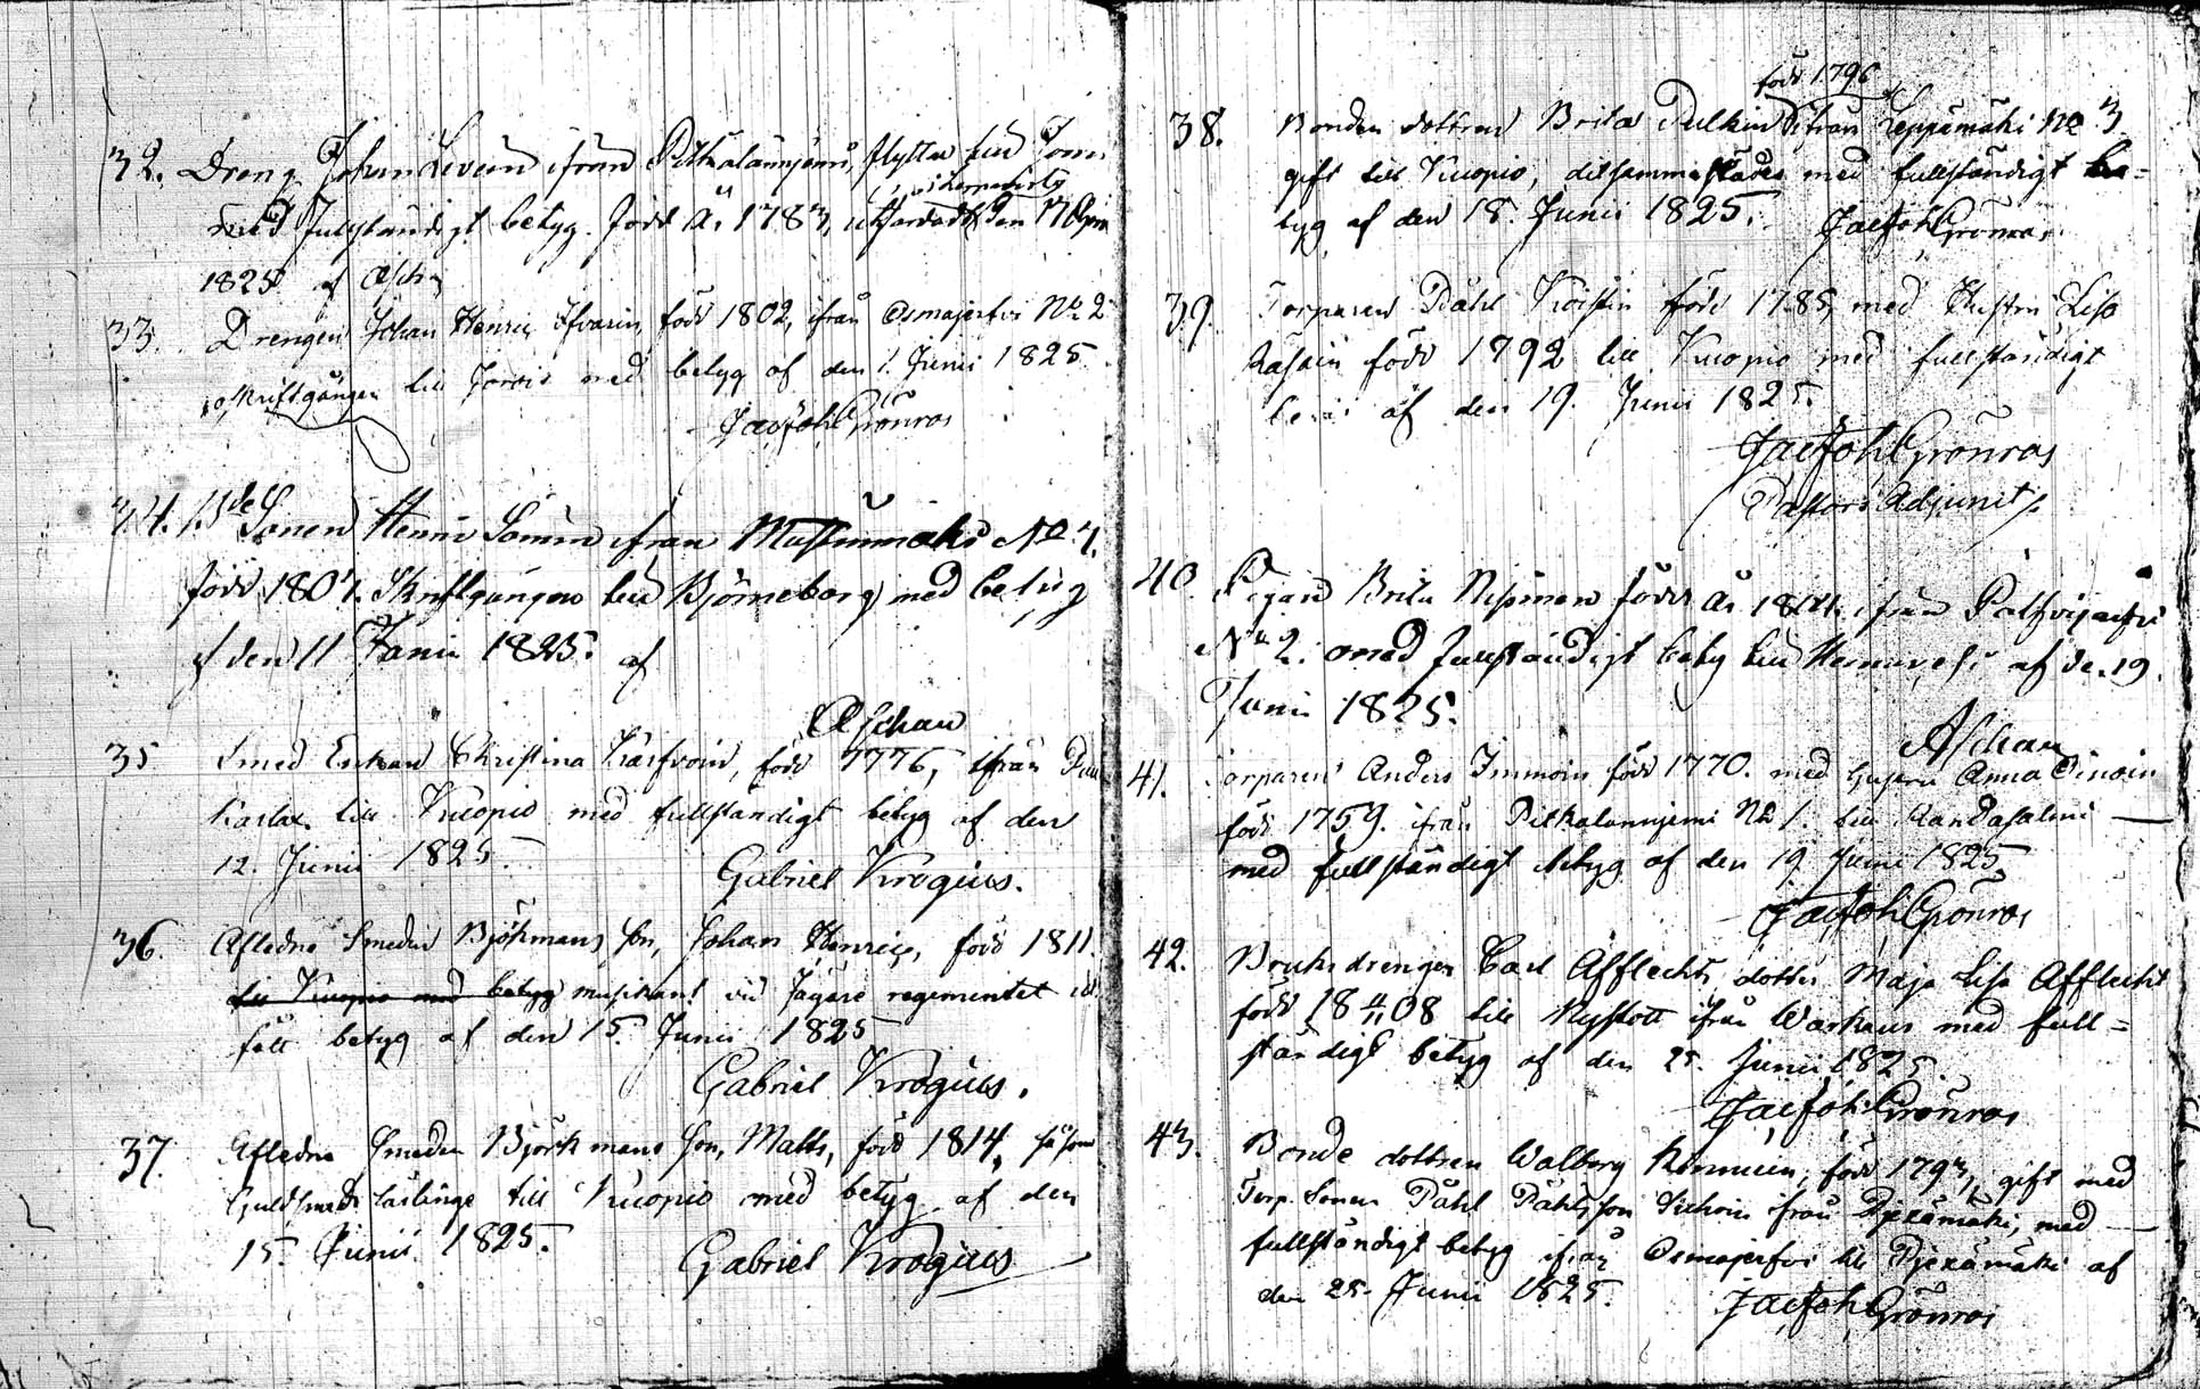 32. Dreng Johan Levein ifrån Pitkälännjemi, flyttar till Jorois
med fullständigt betyg. född år 1783, utfärdadt den
1825 af Asch
33. Drengen Johan Henric född 1802, ifrån Osmajerfvi No 2
skriftgången till Jorois med betyg af den 1. Junii 1825.
Jac Joh Grönros
34. Sonen Henric ifrån No 7.
född 1807. Skriftgången till Björneborg med betyg
af den 11 Junii 1825. af
Aschan
35. Smed Enkan Christina född 1776, ifrån
till Kuopio med fullständigt betyg af den
12. Junii 1825.
Gabriel Krogius.
36. Afledne Smeden Björkmans son, Johan Henric, född 1811.
till Kuopio med betyg musikant vid Jägare regementet
fått betyg af den 15. Junii 1825
Gabriel Krogius.
37. Afledne Smeden Björkmans son, Matts, född 1814, såsom
Guldsmeds lärlinge till Kuopio med betyg af den
15. Junii 1825.
Gabriel Krogius
född 1796
38. Bonden dottren Brita Pulkin ifrån Leppämäki No 3
gift till Kuopio, ditsammastädes med fullständigt be=
tyg af den 18. Junii 1825.
Jac Joh Grönros
39. Torparen Påhl född 1785, med Hustru Lisa
född 1792 till Kuopio med fullständigt
af den 19. Junii 1825.
Jac Joh Grönros
Pastors Adjunct
40. Pigan Brita född år ifrån
No 2. med fullständigt betyg till Heinävesi af de. 19.
Junii 1825.
Aschan
41. Torparen Anders Immoin född 1770. med Hustru Anna
född 1759. ifrån Pitkalannjemi No 1. till Randasalmi
med fullständigt betyg af den 19 Junii 1825
Jac Joh Grönros
42. Bruks drengen Carl Afflechts dotter Maja Lisa Afflecht
född 18 4/11 08 till Nyslott ifrån Warkaus med full=
ständigt betyg af den 25. Junii 1825.
Jac Joh Grönros
43. Bonde dottren Walborg född 1793, gift med
Torp. Sonen Påhl Påhlsson ifrån Pjexämäki, med
fullständigt betyg ifrån Osmajerfvi till Pjexämäki af
den 25. Junii 1825.
Jac Joh Grönros